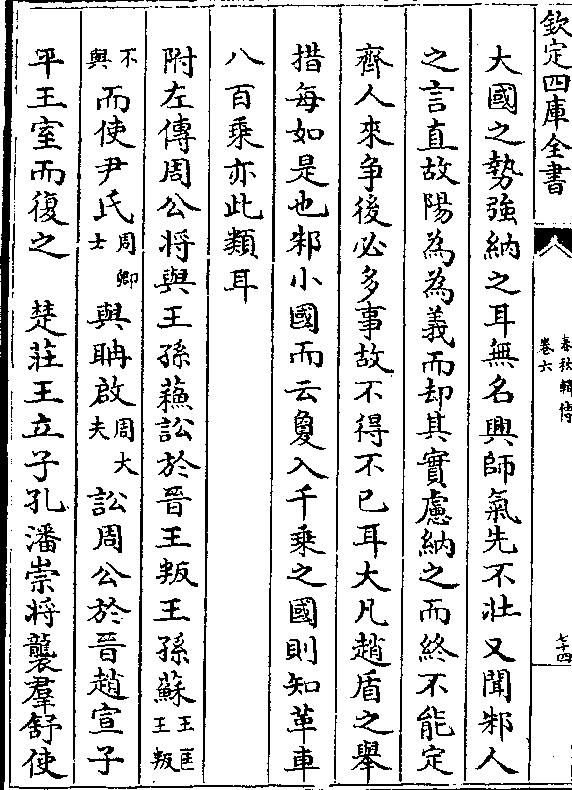 欽定四庫全書
春秋輯傳
卷六
七十四
大國之勢強納之耳無名興師氣先不壯又聞邾人
之言直故陽為為義而却其實慮納之而終不能定
齊人來爭後必多事故不得不已耳大凡趙盾之舉
措每如是也邾小國而云敻入千乘之國則知革車
八百乘亦此類耳
附左傳周公將與王孫蘓訟於晉王叛王孫蘇王匡王叛
不與而使尹氏周卿士與聃啟周大夫訟周公於晉趙宣子
平王室而復之　楚莊王立子孔潘崇將襲羣舒使